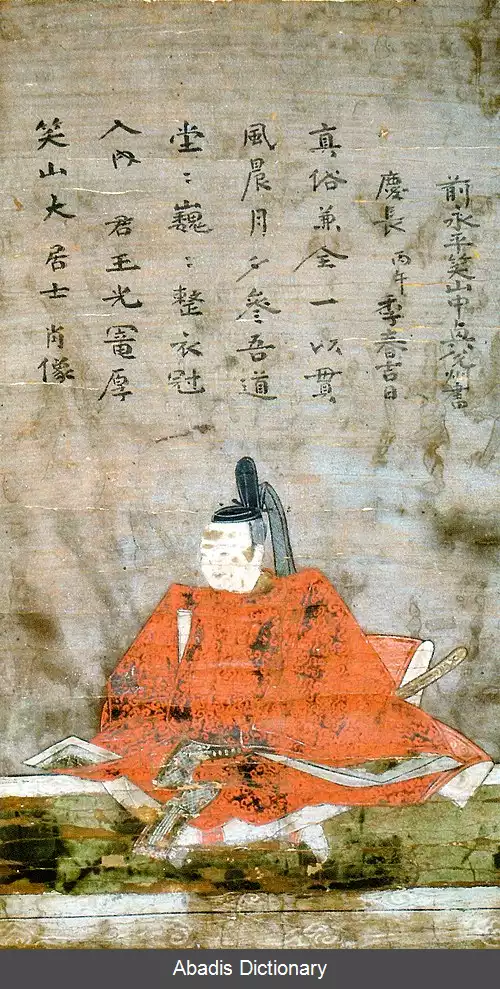 笑山大居士肖像
入内君王光寵厚
堂〻巍〻整衣冠
風晨月夕參吾道
真俗兼全一以貫
慶長丙午季春吉日
前永平笑山中書
Abadis Dictionary